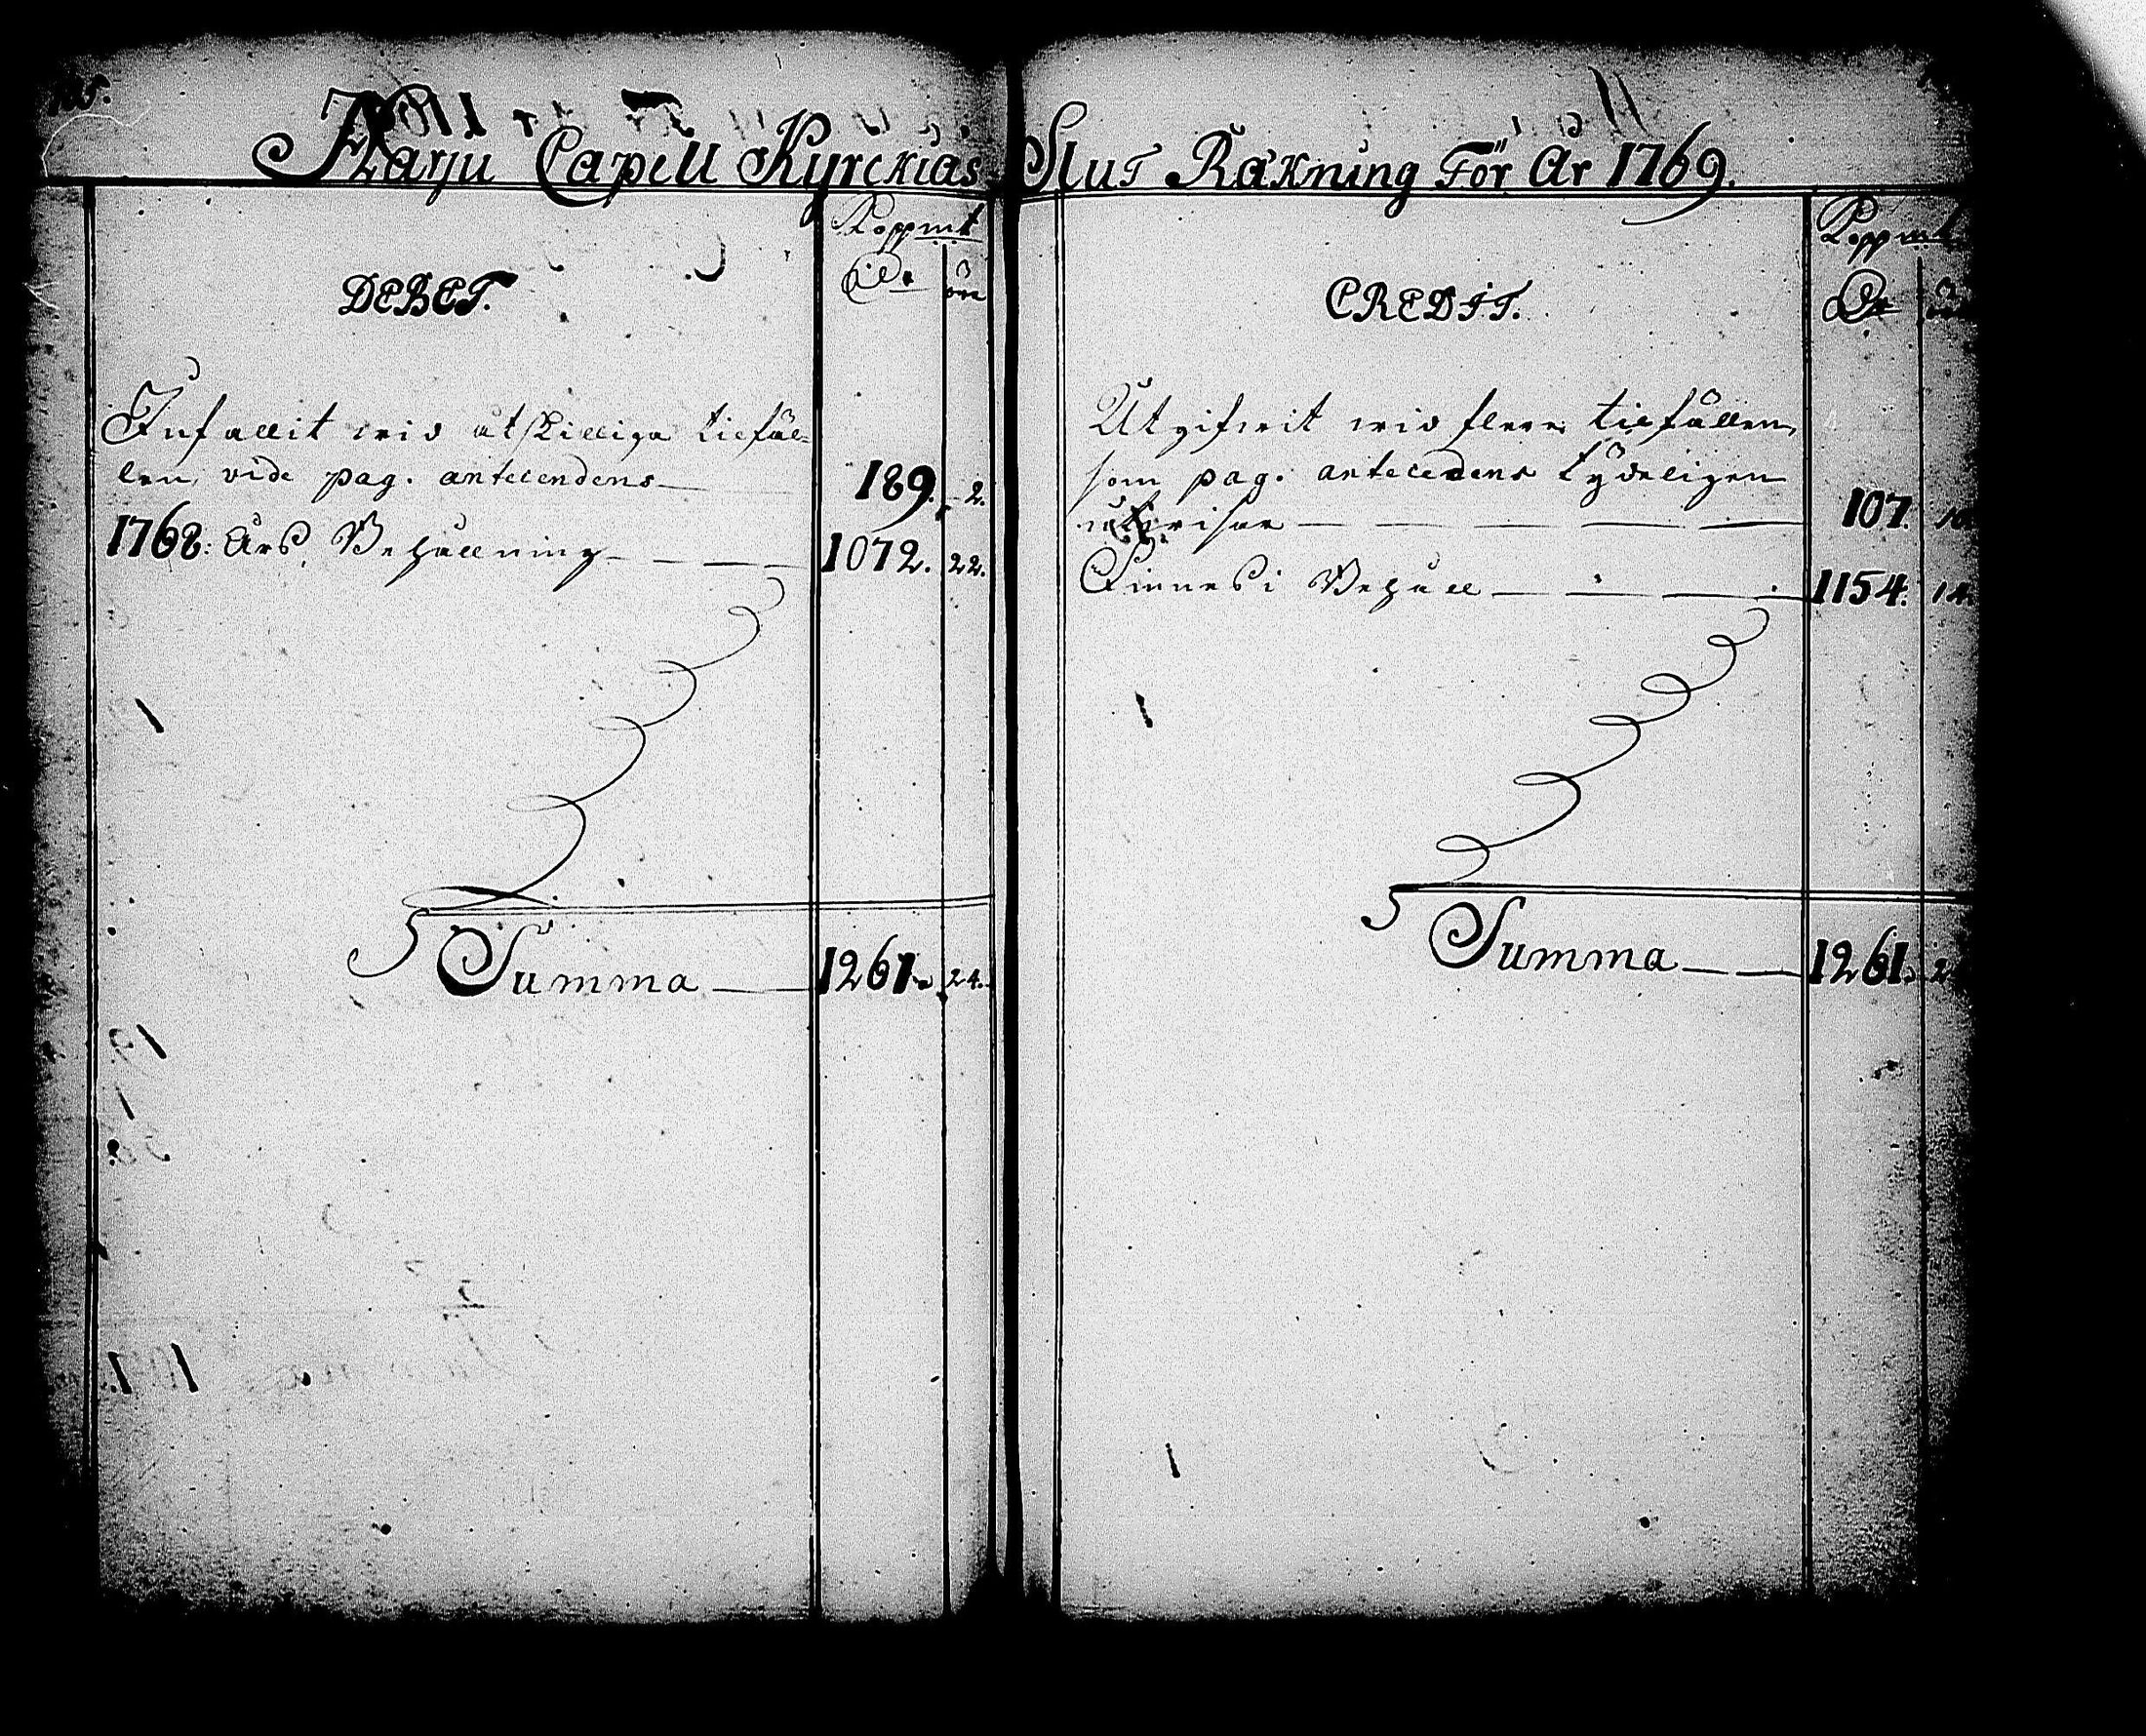 Harju Capell Kyrckias Slut Räkning För År 1769.
Koppmt
DEBET.
Dlr
öre
Infallit wid åtskilliga tilfäl-
len, vide pag. antecendens — 189. 2.
1768: Års Behållning — — — 1072. 22.
Summa — 1261. 24.
Koppmt
CREDIT.
Dr
Utgifwit wid flere tilfällen,
som pag. antecedens tydeligen
utwisar — — — — 107.
Finnes i Behåll — — — — 1154.
Summa — — 1261.